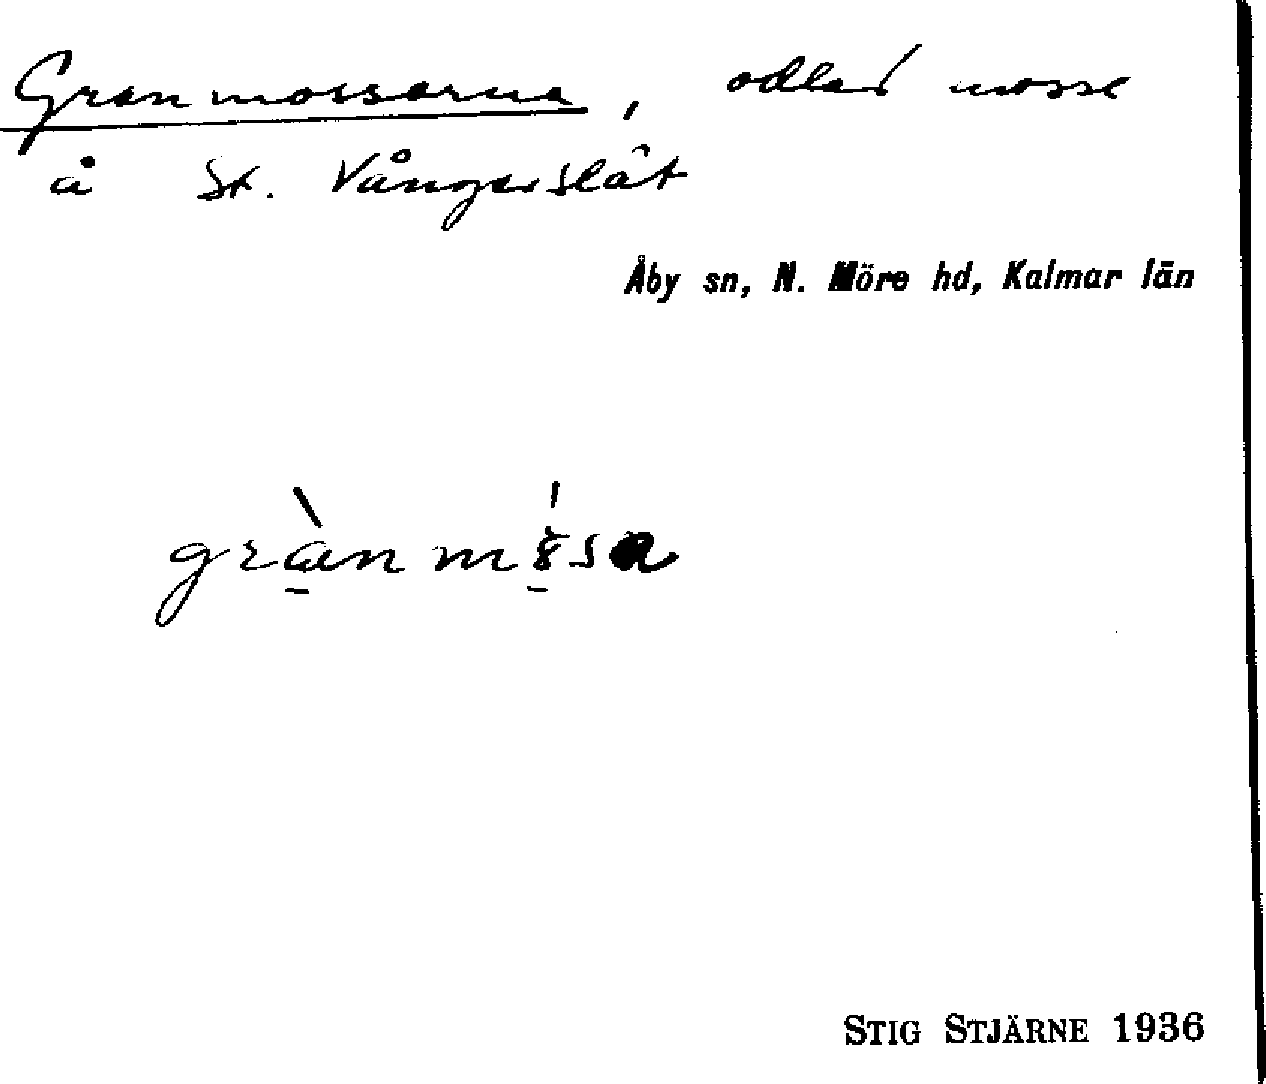 Granmossarna, odlad mosse
å St. Vångerslät
Åby sn, N. Möre hd, Kalmar län
STIG STJÄRNE 1936